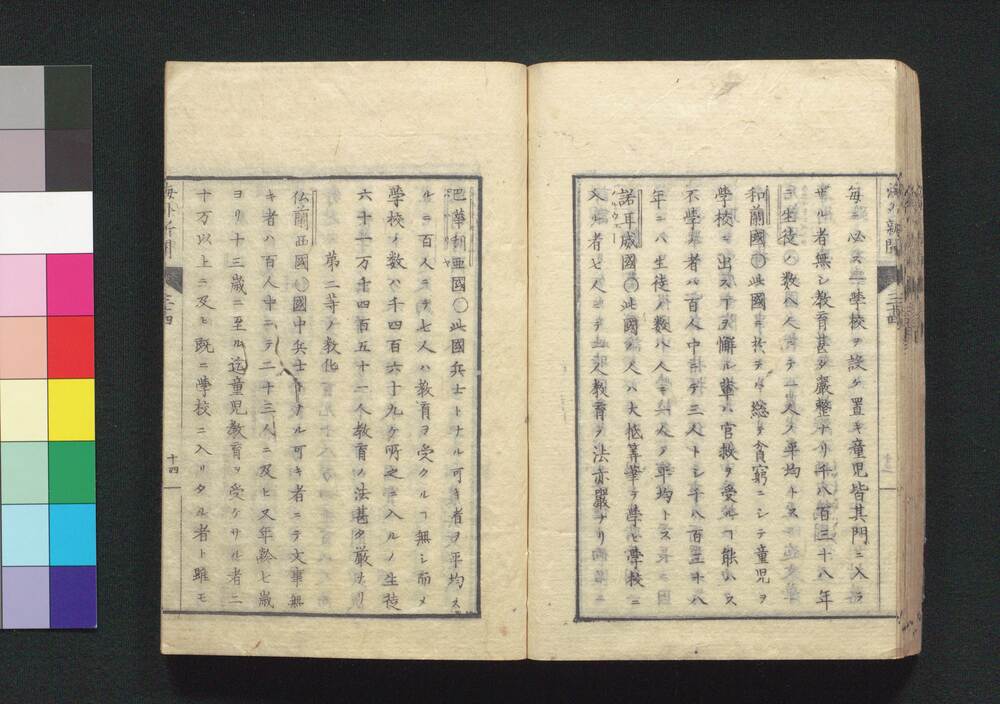 海外新聞
三十四
毎ニ必ス一學校ヲ設ケ置キ童児皆其門ニ入ラ
サル者無シ教育甚タ嚴整ナリ千八百三十八年
ニ生徒ノ数八人ニテ一人ヲ平均トス
和蘭國〇此國ニ於テハ総テ貧窮ニシテ童児ヲ
學校ニ出スヿヲ懈ル輩ハ官救ヲ受ルヿ能ハス
不學ノ者ハ百人中ニテ三人トシ千八百三十八
年ニハ生徒ノ数八人ニテ一人ヲ平均トス
諾耳威國〇此國ノ人ハ大抵筭筆ヲ學ヒ學校ニ
入ル者七人ニテ此教育ノ法亦嚴ナリ
巴華利亜國〇此國兵士トナル可キ者ヲ平均ス
ルニ百人ニテ七人ハ教育ヲ受クルヿ無シ而メ
學校ノ数ハ千四百六十九ケ所之ニ入ルノ生徒
六十一万千四百五十一人教育ノ法甚タ厳ナリ
第二等ノ教化
仏蘭西國〇國中兵士トナル可キ者ニテ文事無
キ者ハ百人中ニテ二十三人ニ及ヒ又年齢七歳
ヨリ十三歳ニ至ル迄童児教育ヲ受ケサル者二
十万以上ニ及ヒ既ニ學校ニ入リタル者ト雖モ
海外新聞
三十四
十四